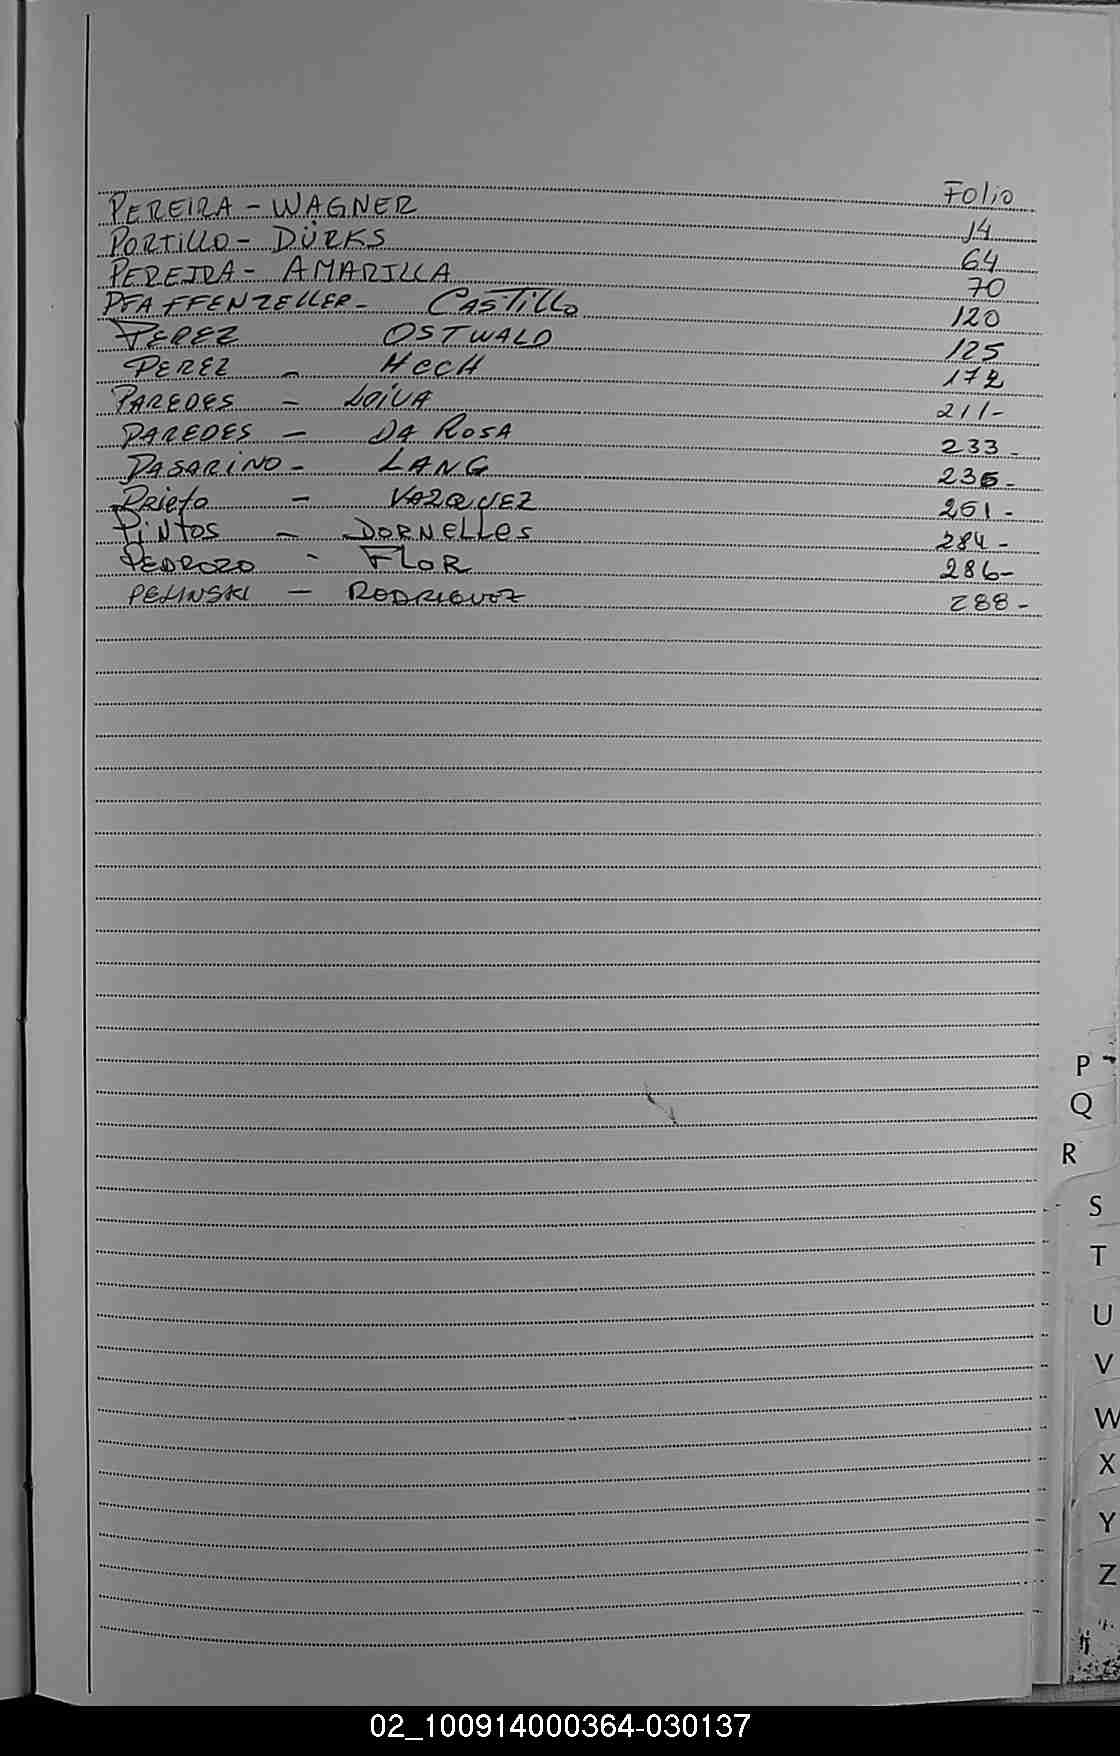 Folio
PEREIRA - WAGNER 14
PORTILLO - DÜRKS 64
PEREIRA - AMARILLA 70
PFAFFENZELLER - CASTILLO 120
PEREZ OSTWALD 125
PEREZ - HECH 172
PAREDES - LOIVA 211-
PAREDES - DA ROSA 233-
PASARINO - LANG 235-
Prieto - VAZQUEZ 261-
PINTOS - DORNELLES 284-
PEDROZO - FLOR 286-
PELINSKI - RODRIGUEZ 288-
P
Q
R
S
T
U
V
W
X
Y
Z
02_100914000364-030137